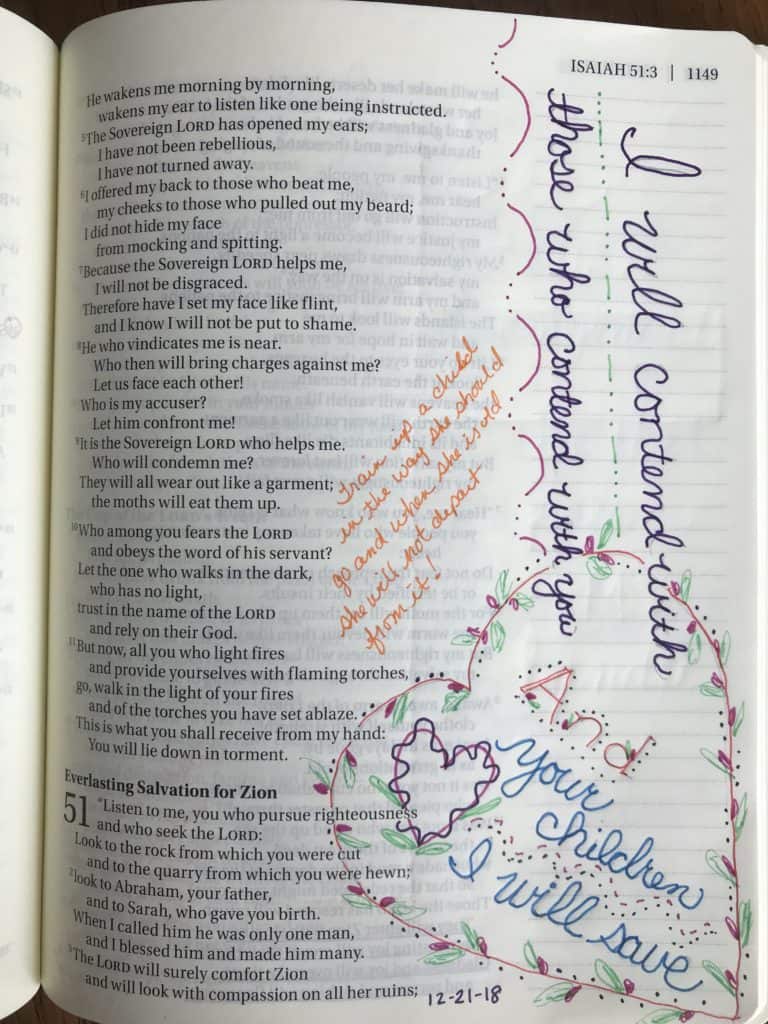 ISAIAH 51:3 | 1149
He wakens me morning by morning,
wakens my ear to listen like one being instructed.
5The Sovereign LORD has opened my ears;
I have not been rebellious,
I have not turned away.
6I offered my back to those who beat me,
my cheeks to those who pulled out my beard;
I did not hide my face
from mocking and spitting.
7Because the Sovereign LORD helps me,
I will not be disgraced.
Therefore have I set my face like flint,
and I know I will not be put to shame.
8He who vindicates me is near.
Who then will bring charges against me?
Let us face each other!
Who is my accuser?
Let him confront me!
9It is the Sovereign LORD who helps me.
Who will condemn me?
They will all wear out like a garment;
the moths will eat them up.
10Who among you fears the LORD
and obeys the word of his servant?
Let the one who walks in the dark,
who has no light,
trust in the name of the LORD
and rely on their God.
11But now, all you who light fires
and provide yourselves with flaming torches,
go, walk in the light of your fires
and of the torches you have set ablaze.
This is what you shall receive from my hand:
You will lie down in torment.
Everlasting Salvation for Zion
51 "Listen to me, you who pursue righteousness
and who seek the LORD:
Look to the rock from which you were cut
and to the quarry from which you were hewn;
2look to Abraham, your father,
and to Sarah, who gave you birth.
When I called him he was only one man,
and I blessed him and made him many.
3The LORD will surely comfort Zion
and will look with compassion on all her ruins;
Train up a child
in the way she should
go and when she is old
she will not depart
from it!
I will contend with
those who contend with you
And
your
children
I will save
12-21-18